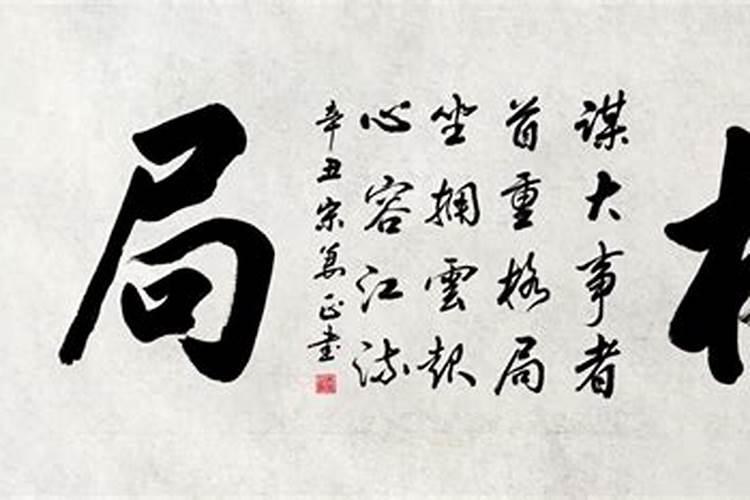 谋大事者
首重格局
坐拥雲起
心容江流
辛丑宗正書
局